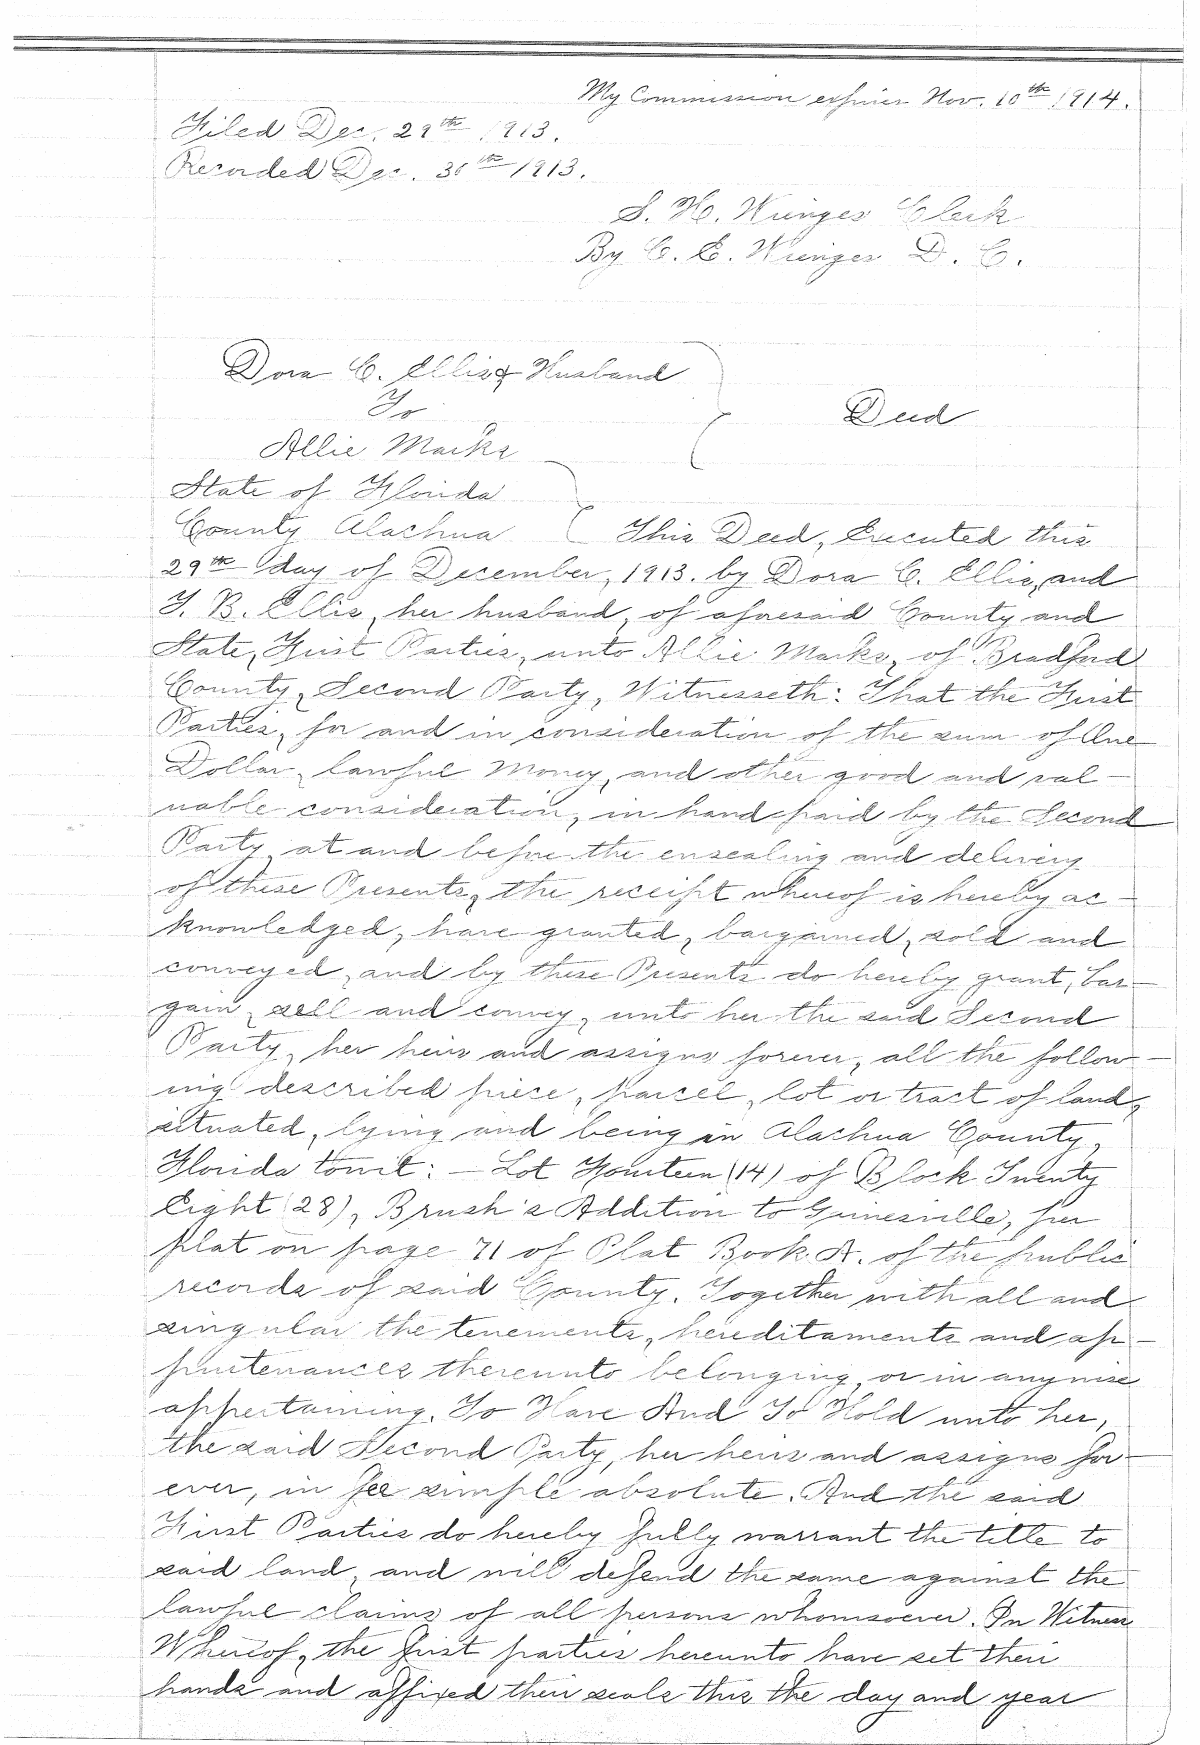 My Commission expires Nov. 10th 1914.
Filed Dec. 29th 1913.
Recorded Dec. 30th 1913.
S. H. Wienges Clerk
By C. E. Wienges D. C.
Dora C. Ellis & Husband
To
Allie Marks
Deed
State of Florida
County Alachua This Deed, Executed this
29th day of December, 1913. by Dora C. Ellis, and
T. B. Ellis, her husband, of aforesaid County and
State, First Parties, unto Allie Marks, of Bradford
County, Second Party, Witnesseth: That the First
Parties, for and in consideration of the sum of One
Dollar, lawful Money, and other good and val-
uable consideration, in hand paid by the Second
Party, at and before the ensealing and delivery
of these Presents, the receipt whereof is hereby ac-
knowledged, have granted, bargained, sold and
conveyed, and by these Presents do hereby grant, bar-
gain, sell and convey, unto her the said Second
Party, her heirs and assigns forever, all the follow-
ing described piece, parcel, lot or tract of land,
situated, lying and being in Alachua County,
Florida towit: - Lot Fourteen (14) of Block Twenty
Eight (28), Brush's Addition to Gainesville, per
plat on page 71 of Plat Book A. of the public
records of said County. Together with all and
singular the tenements, hereditaments and ap-
purtenances thereunto belonging, or in anywise
appertaining. To Have And To Hold unto her,
the said Second Party, her heirs and assigns for-
ever, in fee simple absolute. And the said
First Parties do hereby fully warrant the title to
said land, and will defend the same against the
lawful claims of all persons whomsoever. In Witness
Whereof, the first parties hereunto have set their
hands and affixed their seals this the day and year